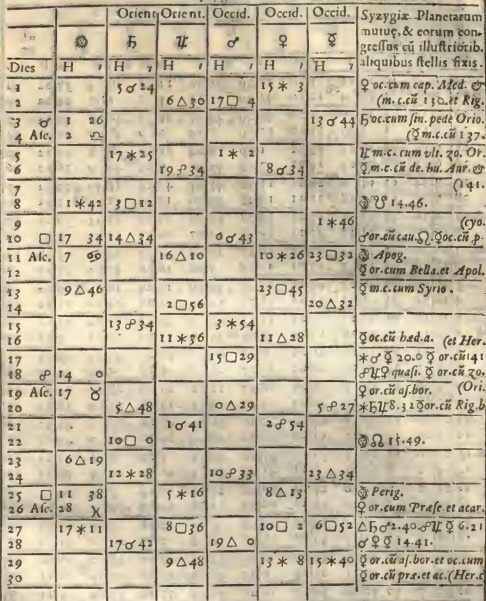 Orient Orient. Occid. Occid. Occid. Syzygiæ Planetarum
☉ ♄ ♃ ♂ ♀ ☿ mutuę, & eorum con-
gressus cū illustriorib.
Dies H , H , H , H , H , H , aliquibus stellis fixis.
1 5 ☌ 24 15 ✶ 3 ♀ oc. cum cap. Med. &
2 6 △ 30 17 □ 4 (m.c. cū 130. et Rig.
3 ☌ 1 26 13 ☌ 44 ♄ oc. cum sin. pede Orio.
4 Asc. 2 ♎ (☿ m.c. cū 137.
5 17 ✶ 25 1 ✶ 2 ♃ m.c. cum vlt. 30. Or.
6 19 ☍ 34 8 ☌ 34 ☿ m.c. cū de. hu. Aur. &
7 (141.
8 1 ✶ 42 3 □ 12 ☽ ☋ 14.46.
9 1 ✶ 46 (cyo.
10 □ 17 34 14 △ 34 6 ☌ 43 ♂ or. cū cau. ♌. ☿ oc. cū p-
11 Asc. 7 ♋ 16 △ 10 10 ✶ 26 23 □ 32 ☽ Apog.
12 ☿ or. cum Bella. et Apol.
13 9 △ 46 23 □ 45 ☿ m.c. cum Syrio.
14 2 □ 56 20 △ 32
15 13 ☍ 34 3 ✶ 54
16 11 ✶ 36 11 △ 28 ☿ oc. cū hæd. a. (et Her.
17 15 □ 29 ✶ ♂ ☿ 20.0 ☿ or. cū 141
18 ☍ 14 0 ☍ ♃ ♀ quasi. ☿ or. cū 30.
19 Asc. 17 ♉ ♀ or. cū as. bor. (Ori.
20 5 △ 48 0 △ 29 5 ☍ 27 ✶ ♄ ♃ 8.32 ☿ or. cū Rig. b
21 1 ☌ 41 2 ☍ 54
22 10 □ 0 ☽ ☊ 15.49.
23 6 △ 19
24 12 ✶ 28 10 ☍ 33 23 △ 34
25 □ 11 38 5 ✶ 16 8 △ 13 ☽ Perig.
26 Asc. 28 ♓ ♀ or. cum Præse. et acar.
27 17 ✶ 11 8 □ 36 10 □ 2 6 □ 52 △ ♄ ♂ 2.40. ☍ ♃ ☿ 6.21
28 17 ☌ 42 19 △ 0 ☌ ♀ ☿ 14.41.
29 9 △ 48 13 ✶ 8 15 ✶ 40 ☿ or. cū as. bor. et oc. cum
30 ☿ or. cū præ. et ac. (Her. c